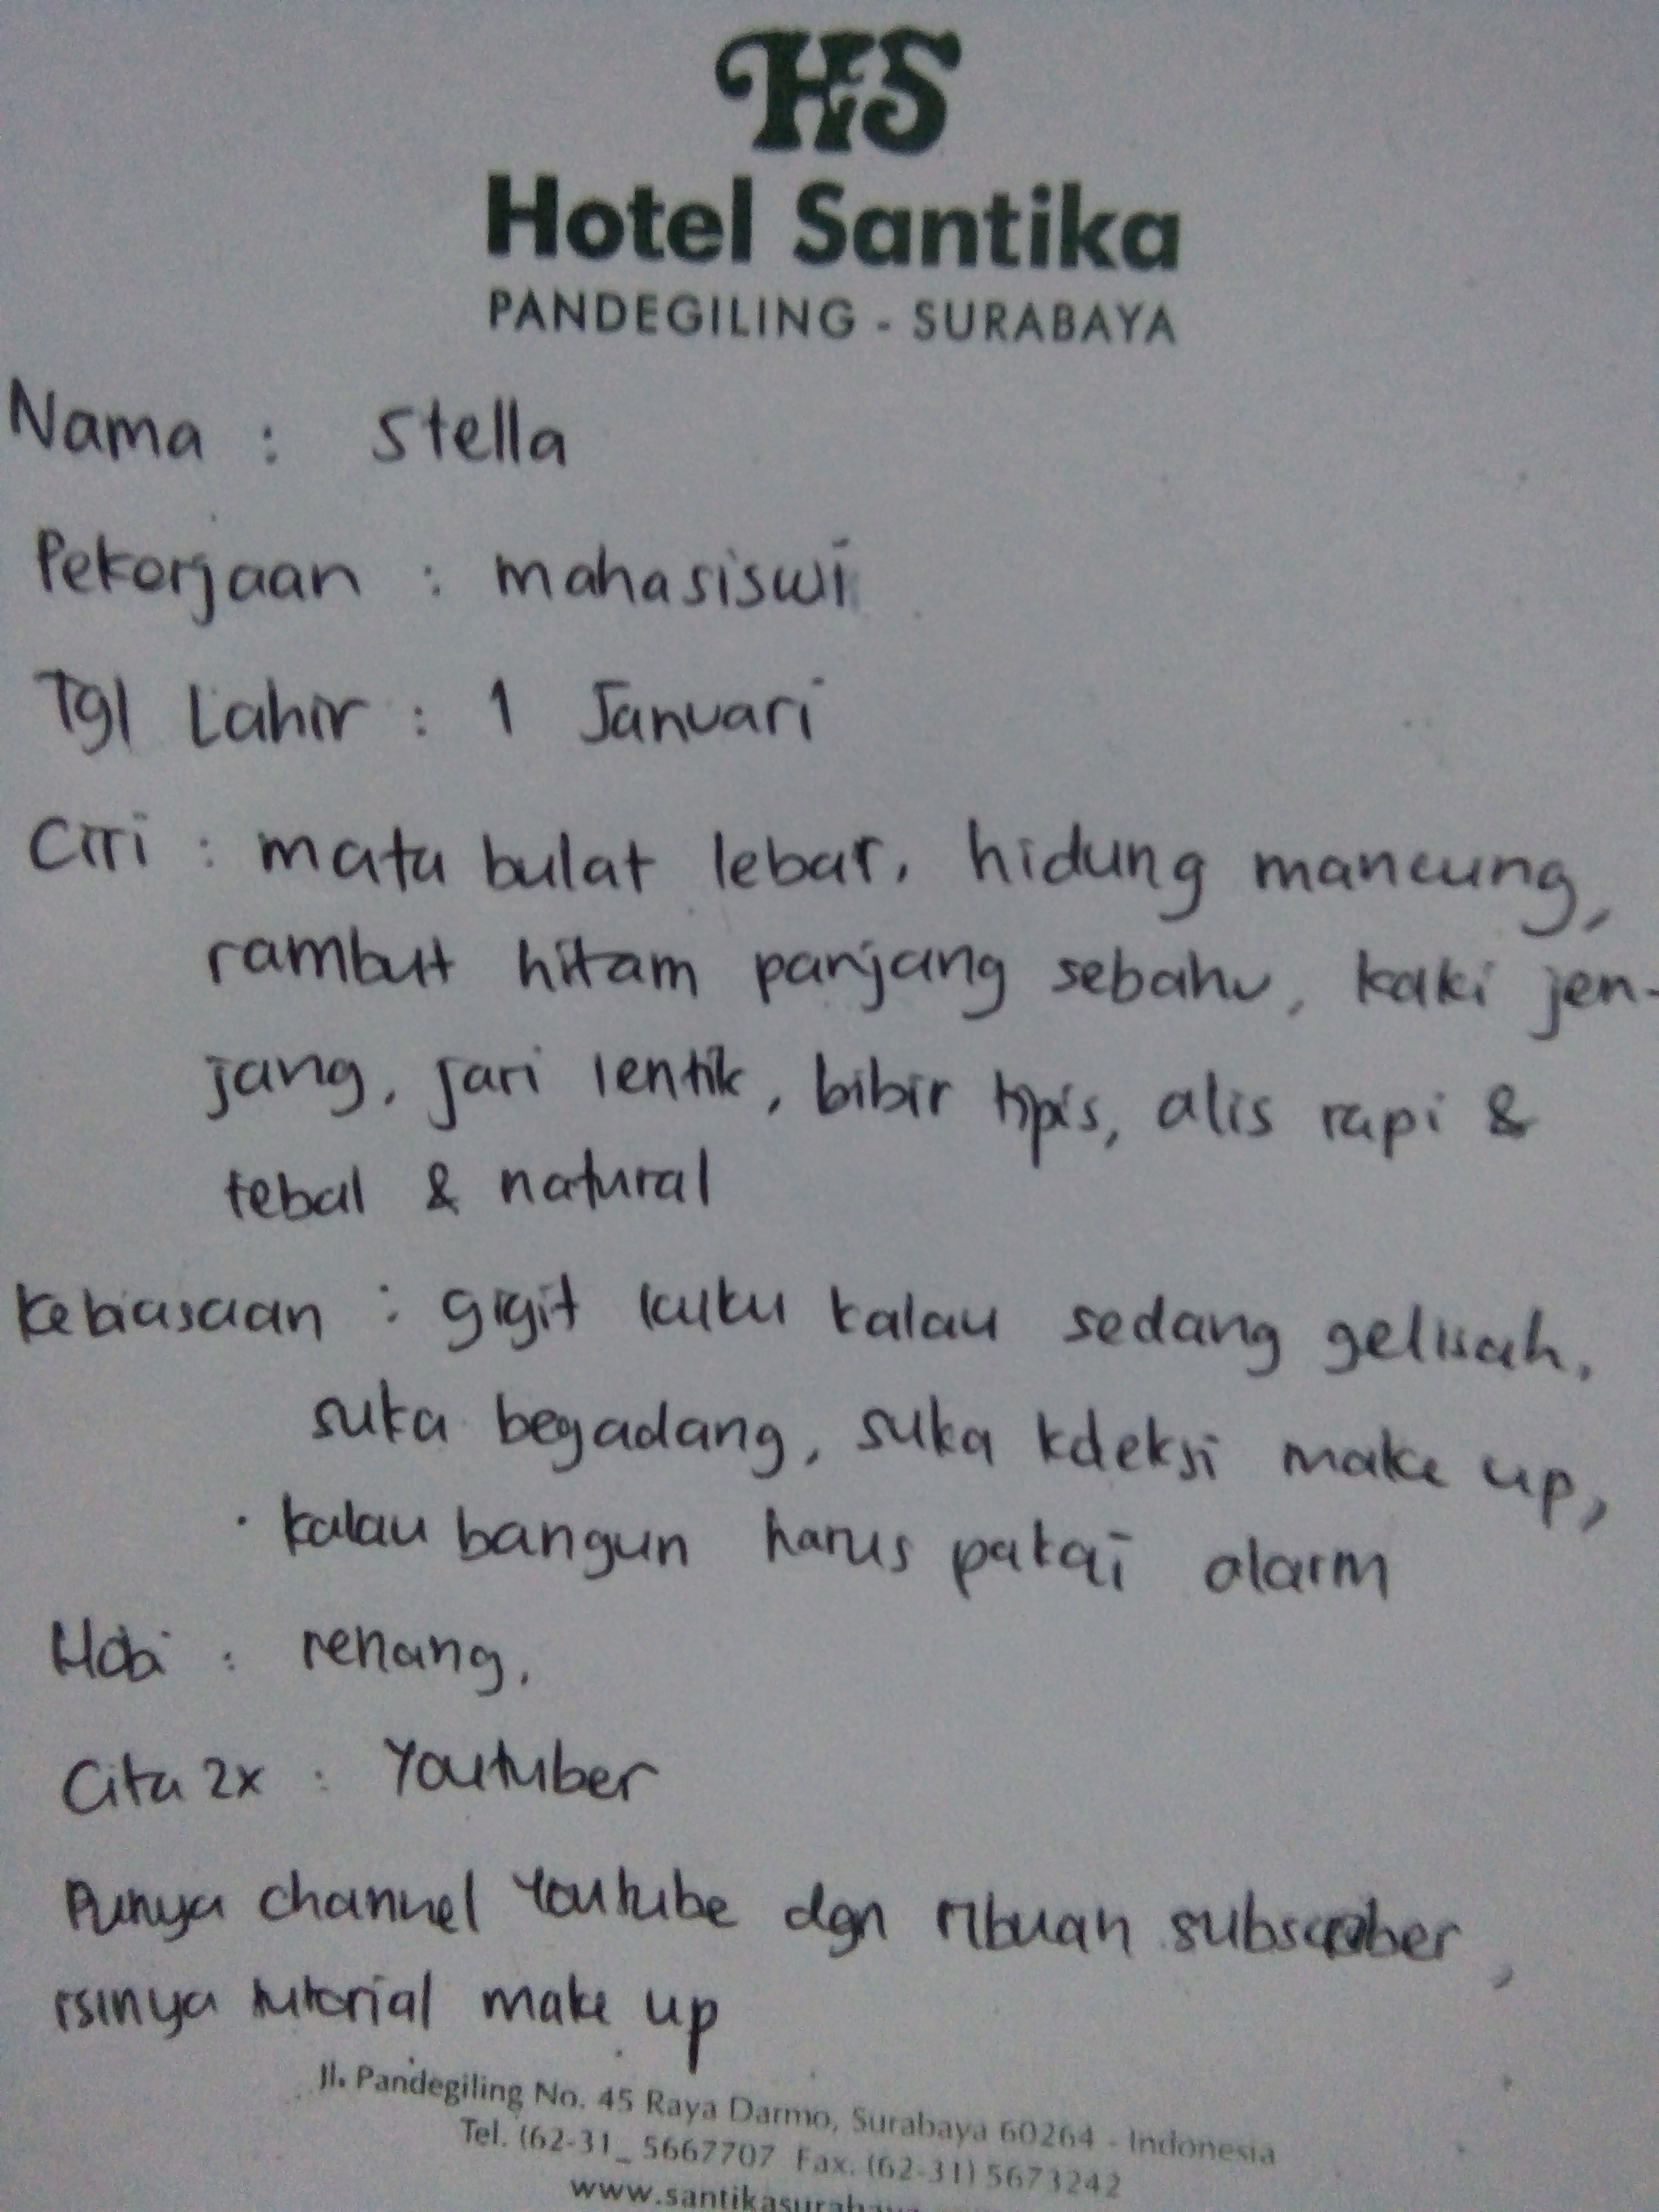 HS
Hotel Santika
PANDEGILING - SURABAYA
Nama : Stella
Pekerjaan : mahasiswi
Tgl Lahir : 1 Januari
Ciri : mata bulat lebar, hidung mancung,
rambut hitam panjang sebahu, kaki jen-
jang, jari lentik, bibir tipis, alis rapi &
tebal & natural
Kebiasaan : gigit kuku kalau sedang gelisah,
suka begadang, suka koleksi make up,
· kalau bangun harus pakai alarm
Hobi : renang,
Cita2x : Youtuber
Punya channel Youtube dgn ribuan subscriber,
isinya tutorial make up
Jl. Pandegiling No. 45 Raya Darmo, Surabaya 60264 - Indonesia
Tel. (62-31_ 5667707 Fax. (62-31) 5673242